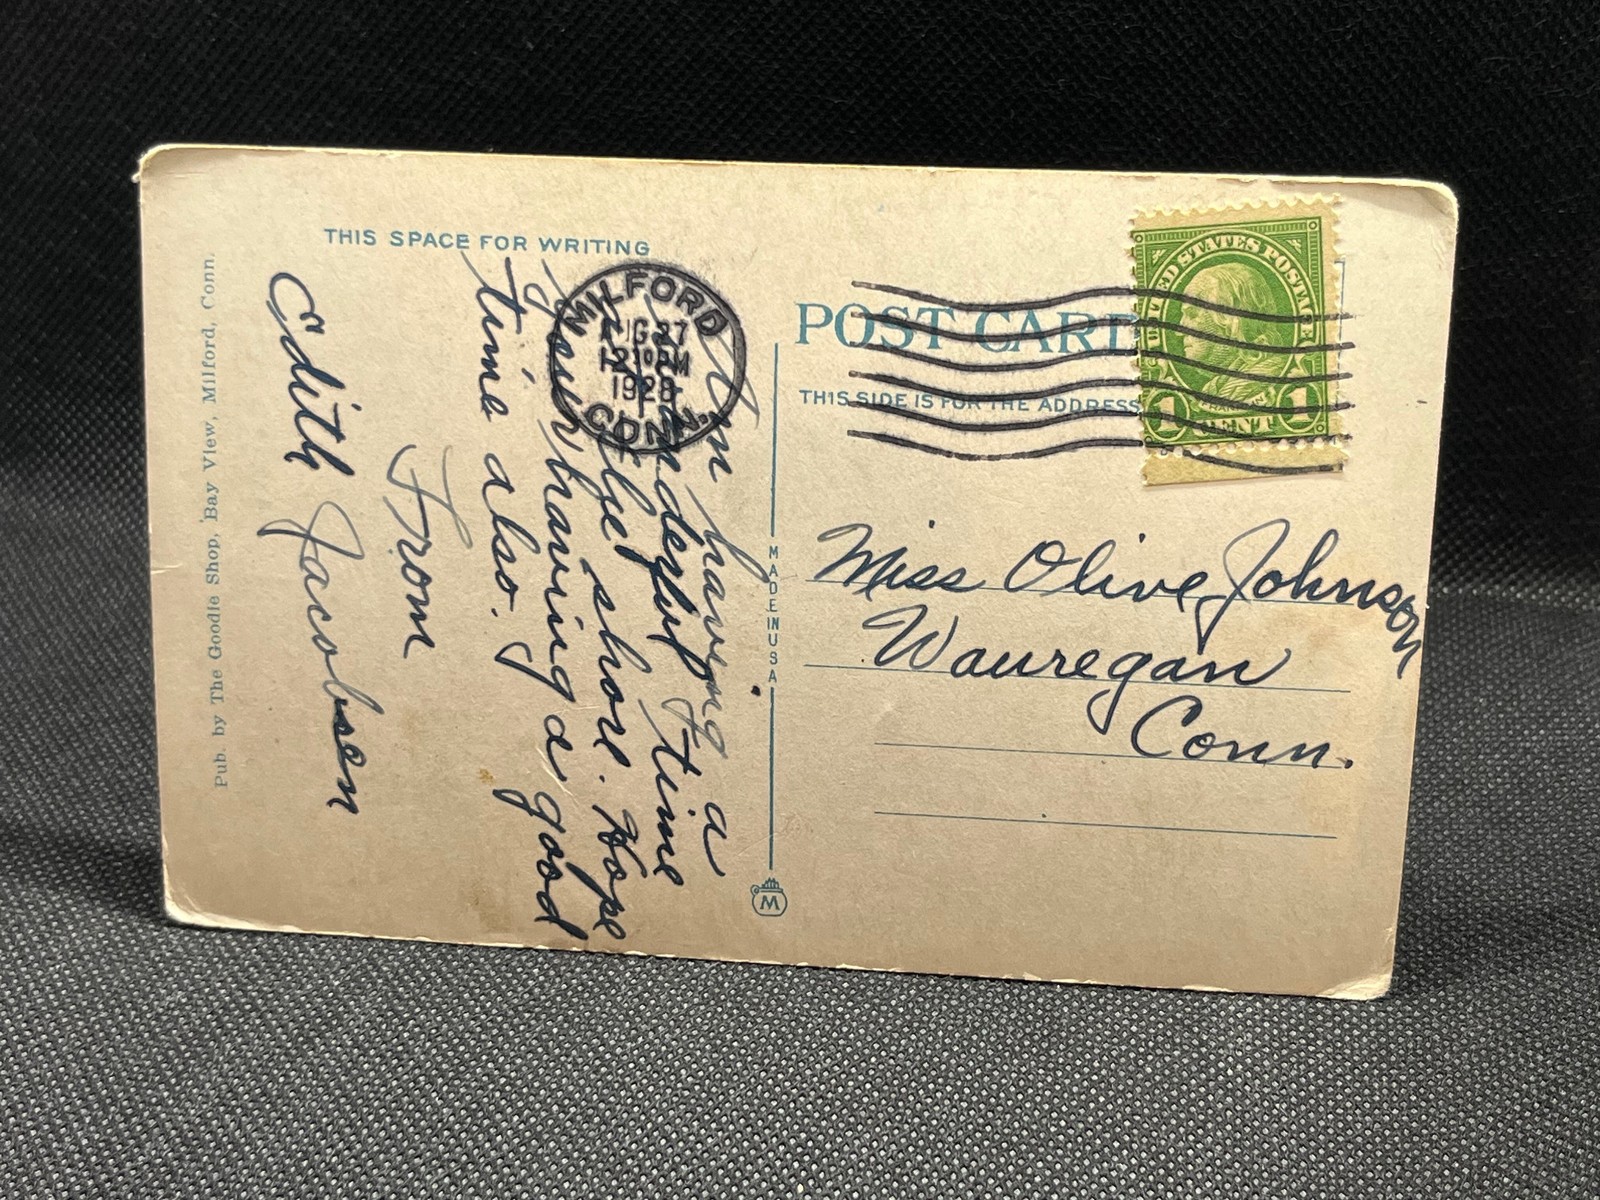 THIS SPACE FOR WRITING
MILFORD
AUG 27
12 30 PM
1928
CONN.
Am having a
wonderful time
at the shore. Hope
your having a good
time also.
From
Edith Jacobsen
Pub. by The Goodie Shop, Bay View, Milford, Conn.
MADE IN USA
M
POST CARD
THIS SIDE IS FOR THE ADDRESS
UNITED STATES POSTAGE
FRANKLIN
1 CENT 1
Miss Olive Johnson
Wauregan
Conn.